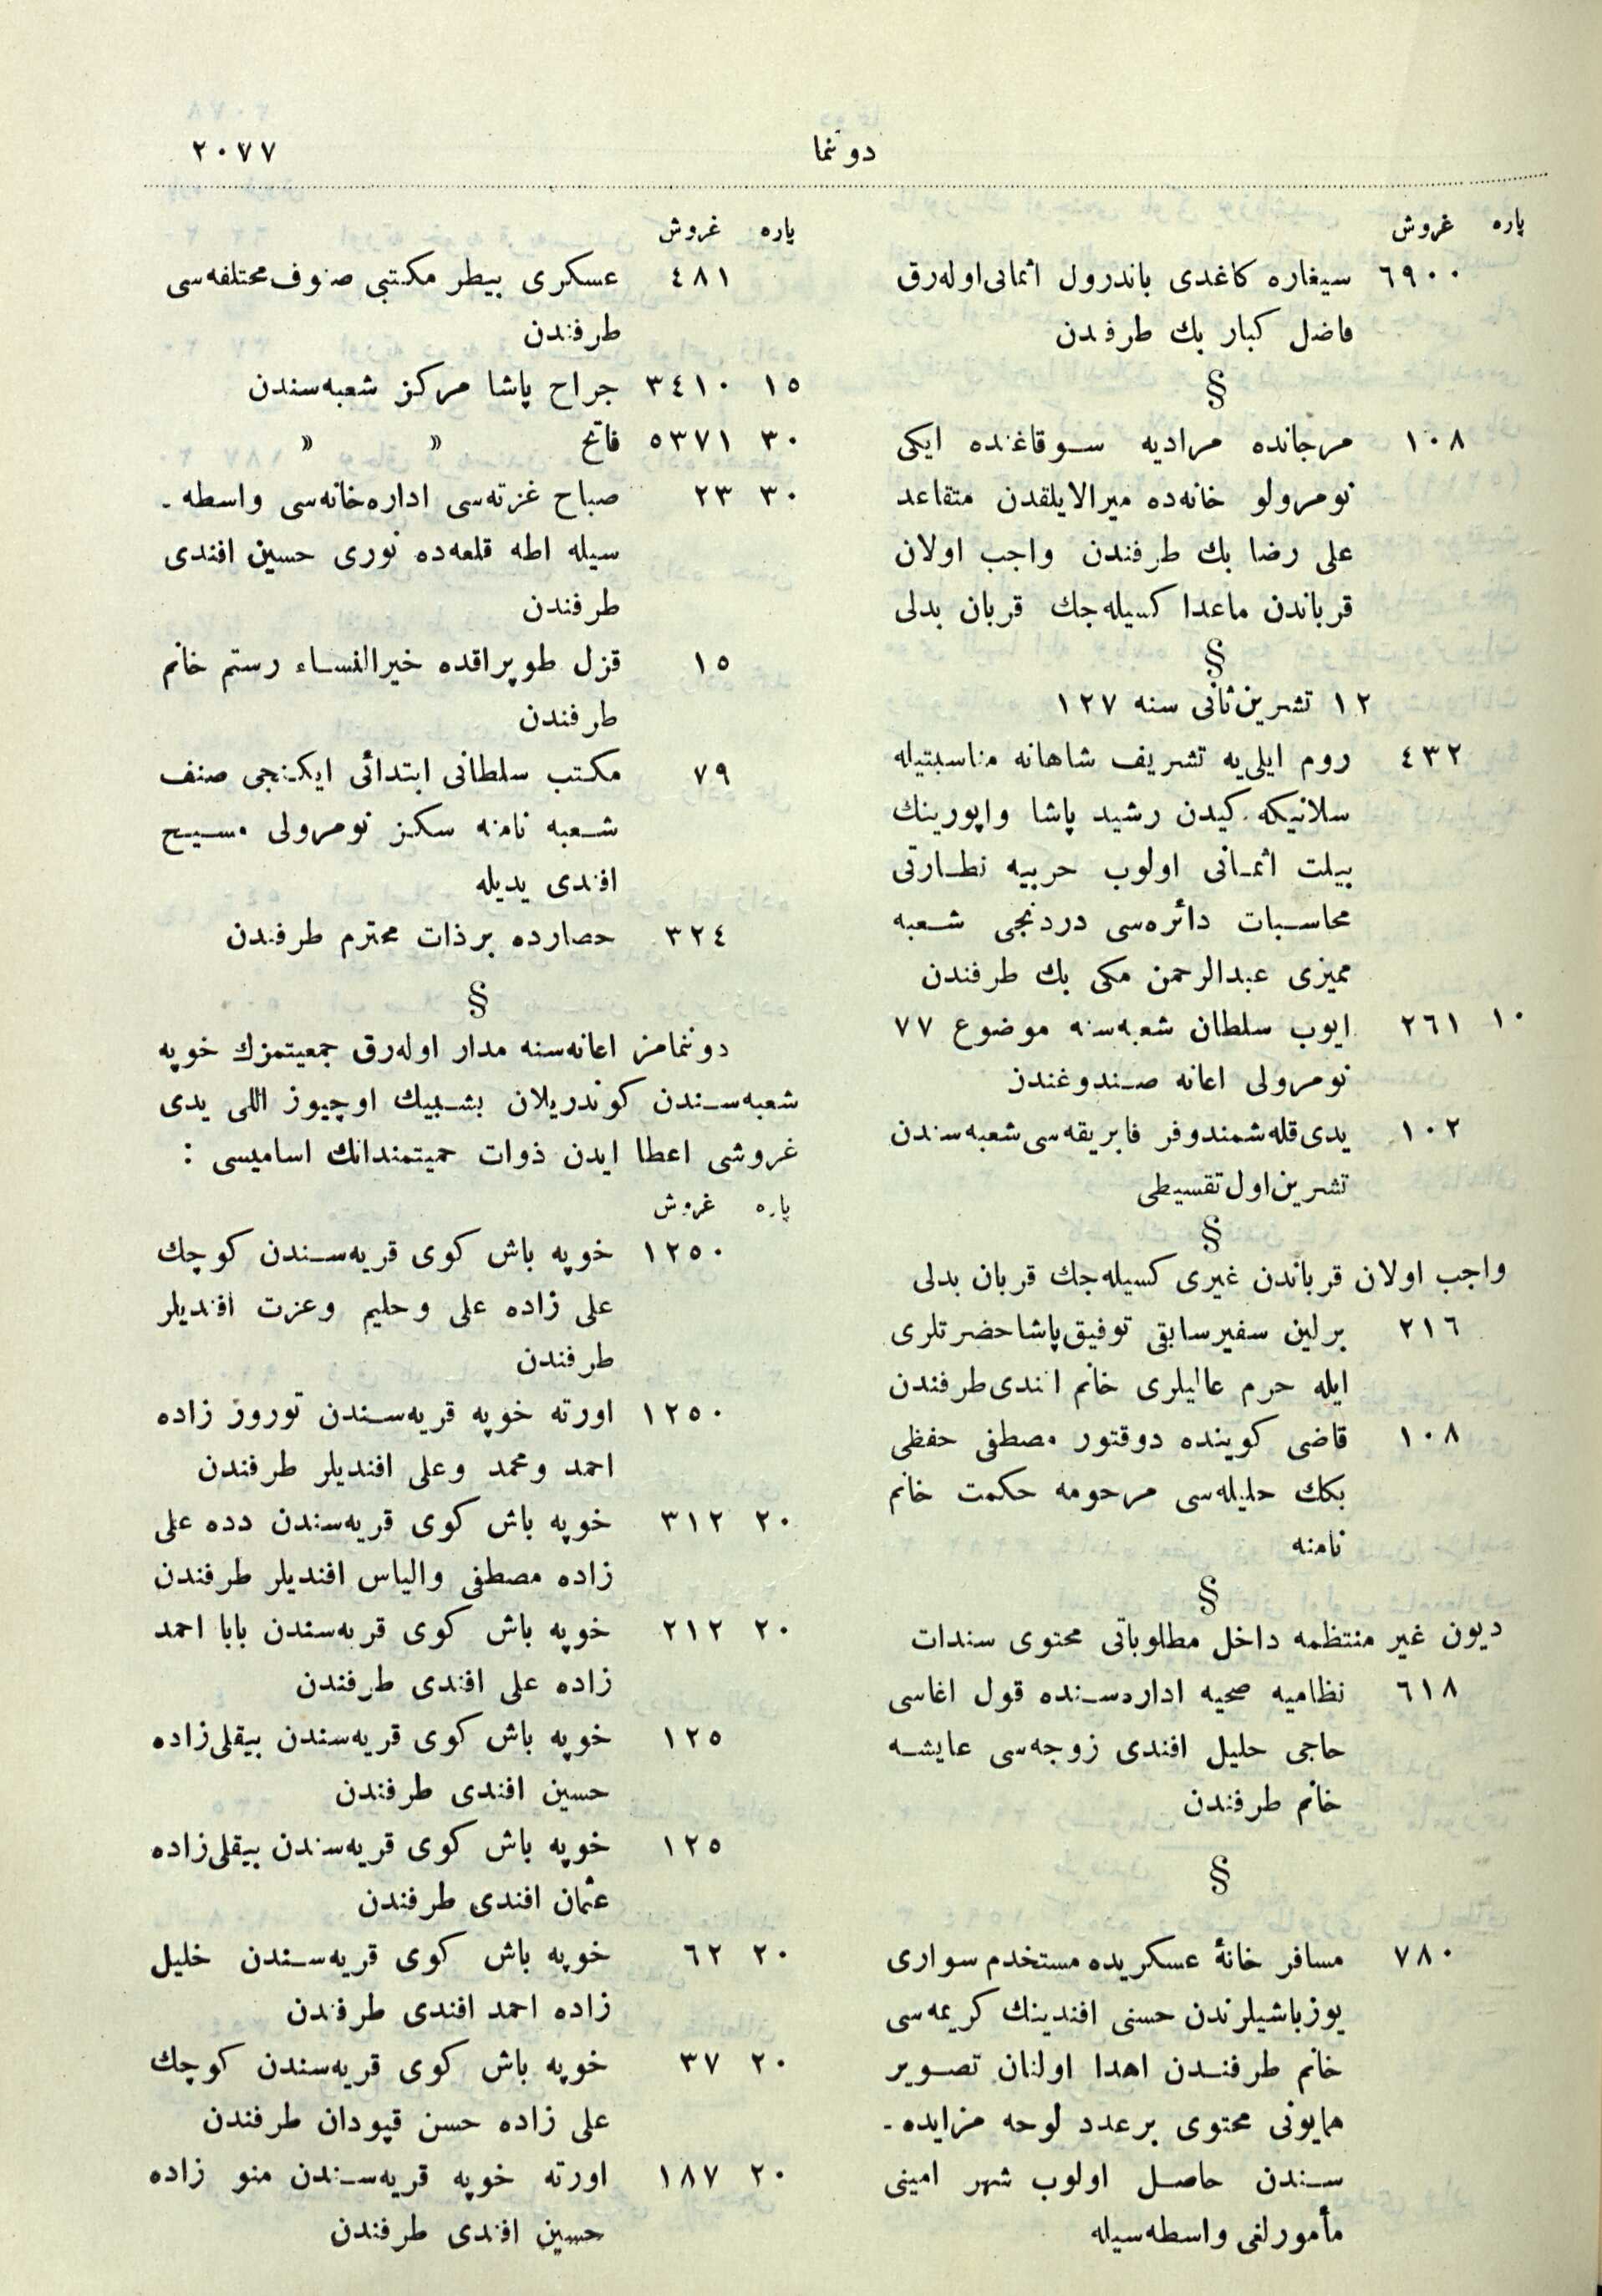 ٢٠٧٧
دونما
پاره غروش
٦٩٠٠ سیغاره كاغدی باندرول اثمانی اوله‌رق
فاضل كبار بك طرفندن
§
١٠٨ مرجانده مرادیه سوقاغنده ایكی
نومرولو خانه‌ده میرالایلقدن متقاعد
علی رضا بك طرفندن واجب اولان
قرباندن ماعدا كسیله‌جك قربان بدلی
§
١٢ تشرین‌ثانی سنه ١٢٧
٤٣٢ روم ایلی‌یه تشریف شاهانه مناسبتیله
سلانیكه كیدن رشید پاشا واپورینك
بیلت اثمانی اولوب حربیه نظارتی
محاسبات دائره‌سی دردنجی شعبه
ممیزی عبدالرحمن مكی بك طرفندن
١٠ ٢٦١ ایوب سلطان شعبه‌سنه موضوع ٧٧
نومرولی اعانه صندوغندن
١٠٢ یدی‌قله شمندوفر فابریقه‌سی شعبه‌سندن
تشرین‌اول تقسیطی
§
واجب اولان قرباندن غیری كسیله‌جك قربان بدلی
٢١٦ برلین سفیر سابقی توفیق‌پاشا حضرتلری
ایله حرم عالیلری خانم افندی طرفندن
١٠٨ قاضی كوینده دوقتور مصطفی حفظی
بكك حلیله‌سی مرحومه حكمت خانم
نامنه
§
دیون غیر منتظمه داخل مطلوباتی محتوی سندات
٦١٨ نظامیه صحیه اداره‌سنده قول اغاسی
حاجی حلیل افندی زوجه‌سی عایشه
خانم طرفندن
§
٧٨٠ مسافر خانهٔ عسكریده مستخدم سواری
یوزباشیلرندن حسنی افندینك كریمه‌سی
خانم طرفندن اهدا اولنان تصویر
همایونی محتوی برعدد لوحه مزایده‌-
سندن حاصل اولوب شهر امینی
مأمورلغی واسطه‌سیله
پاره غروش
٤٨١ عسكری بیطر مكتبی صنوف مختلفه‌سی
طرفندن
١٥ ٣٤١٠ جراح پاشا مركز شعبه‌سندن
٣٠ ٥٣٧١ فاتح » »
٣٠ ٢٣ صباح غزته‌سی اداره‌خانه‌سی واسطه-
سیله اطه قلعه‌ده نوری حسین افندی
طرفندن
١٥ قزل طوپراقده خیرالنساء رستم خانم
طرفندن
٧٩ مكتب سلطانی ابتدائی ایكنجی صنف
شعبه نامنه سكز نومرولی مسیح
افندی یدیله
٣٢٤ حصارده برذات محترم طرفندن
§
دونمامز اعانه‌سنه مدار اوله‌رق جمعیتمزك خوپه
شعبه‌سندن كوندریلان بشبیك اوچیوز اللی یدی
غروشی اعطا ایدن ذوات حمیتمندانك اسامیسی :
پاره غروش
١٢٥٠ خوپه باش كوی قریه‌سندن كوچك
علی زاده علی وحلیم وعزت افندیلر
طرفندن
١٢٥٠ اورته خوپه قریه‌سندن توروز زاده
احمد ومحمد وعلی افندیلر طرفندن
٢٠ ٣١٢ خوپه باش كوی قریه‌سندن دده علی
زاده مصطفی والیاس افندیلر طرفندن
٢٠ ٢١٢ خوپه باش كوی قریه‌سندن بابا احمد
زاده علی افندی طرفندن
١٢٥ خوپه باش كوی قریه‌سندن بیقلی‌زاده
حسین افندی طرفندن
١٢٥ خوپه باش كوی قریه‌سندن بیقلی‌زاده
عثمان افندی طرفندن
٢٠ ٦٢ خوپه باش كوی قریه‌سندن خلیل
زاده احمد افندی طرفندن
٢٠ ٣٧ خوپه باش كوی قریه‌سندن كوچك
علی زاده حسن قپودان طرفندن
٢٠ ١٨٧ اورته خوپه قریه‌سندن منو زاده
حسین افندی طرفندن